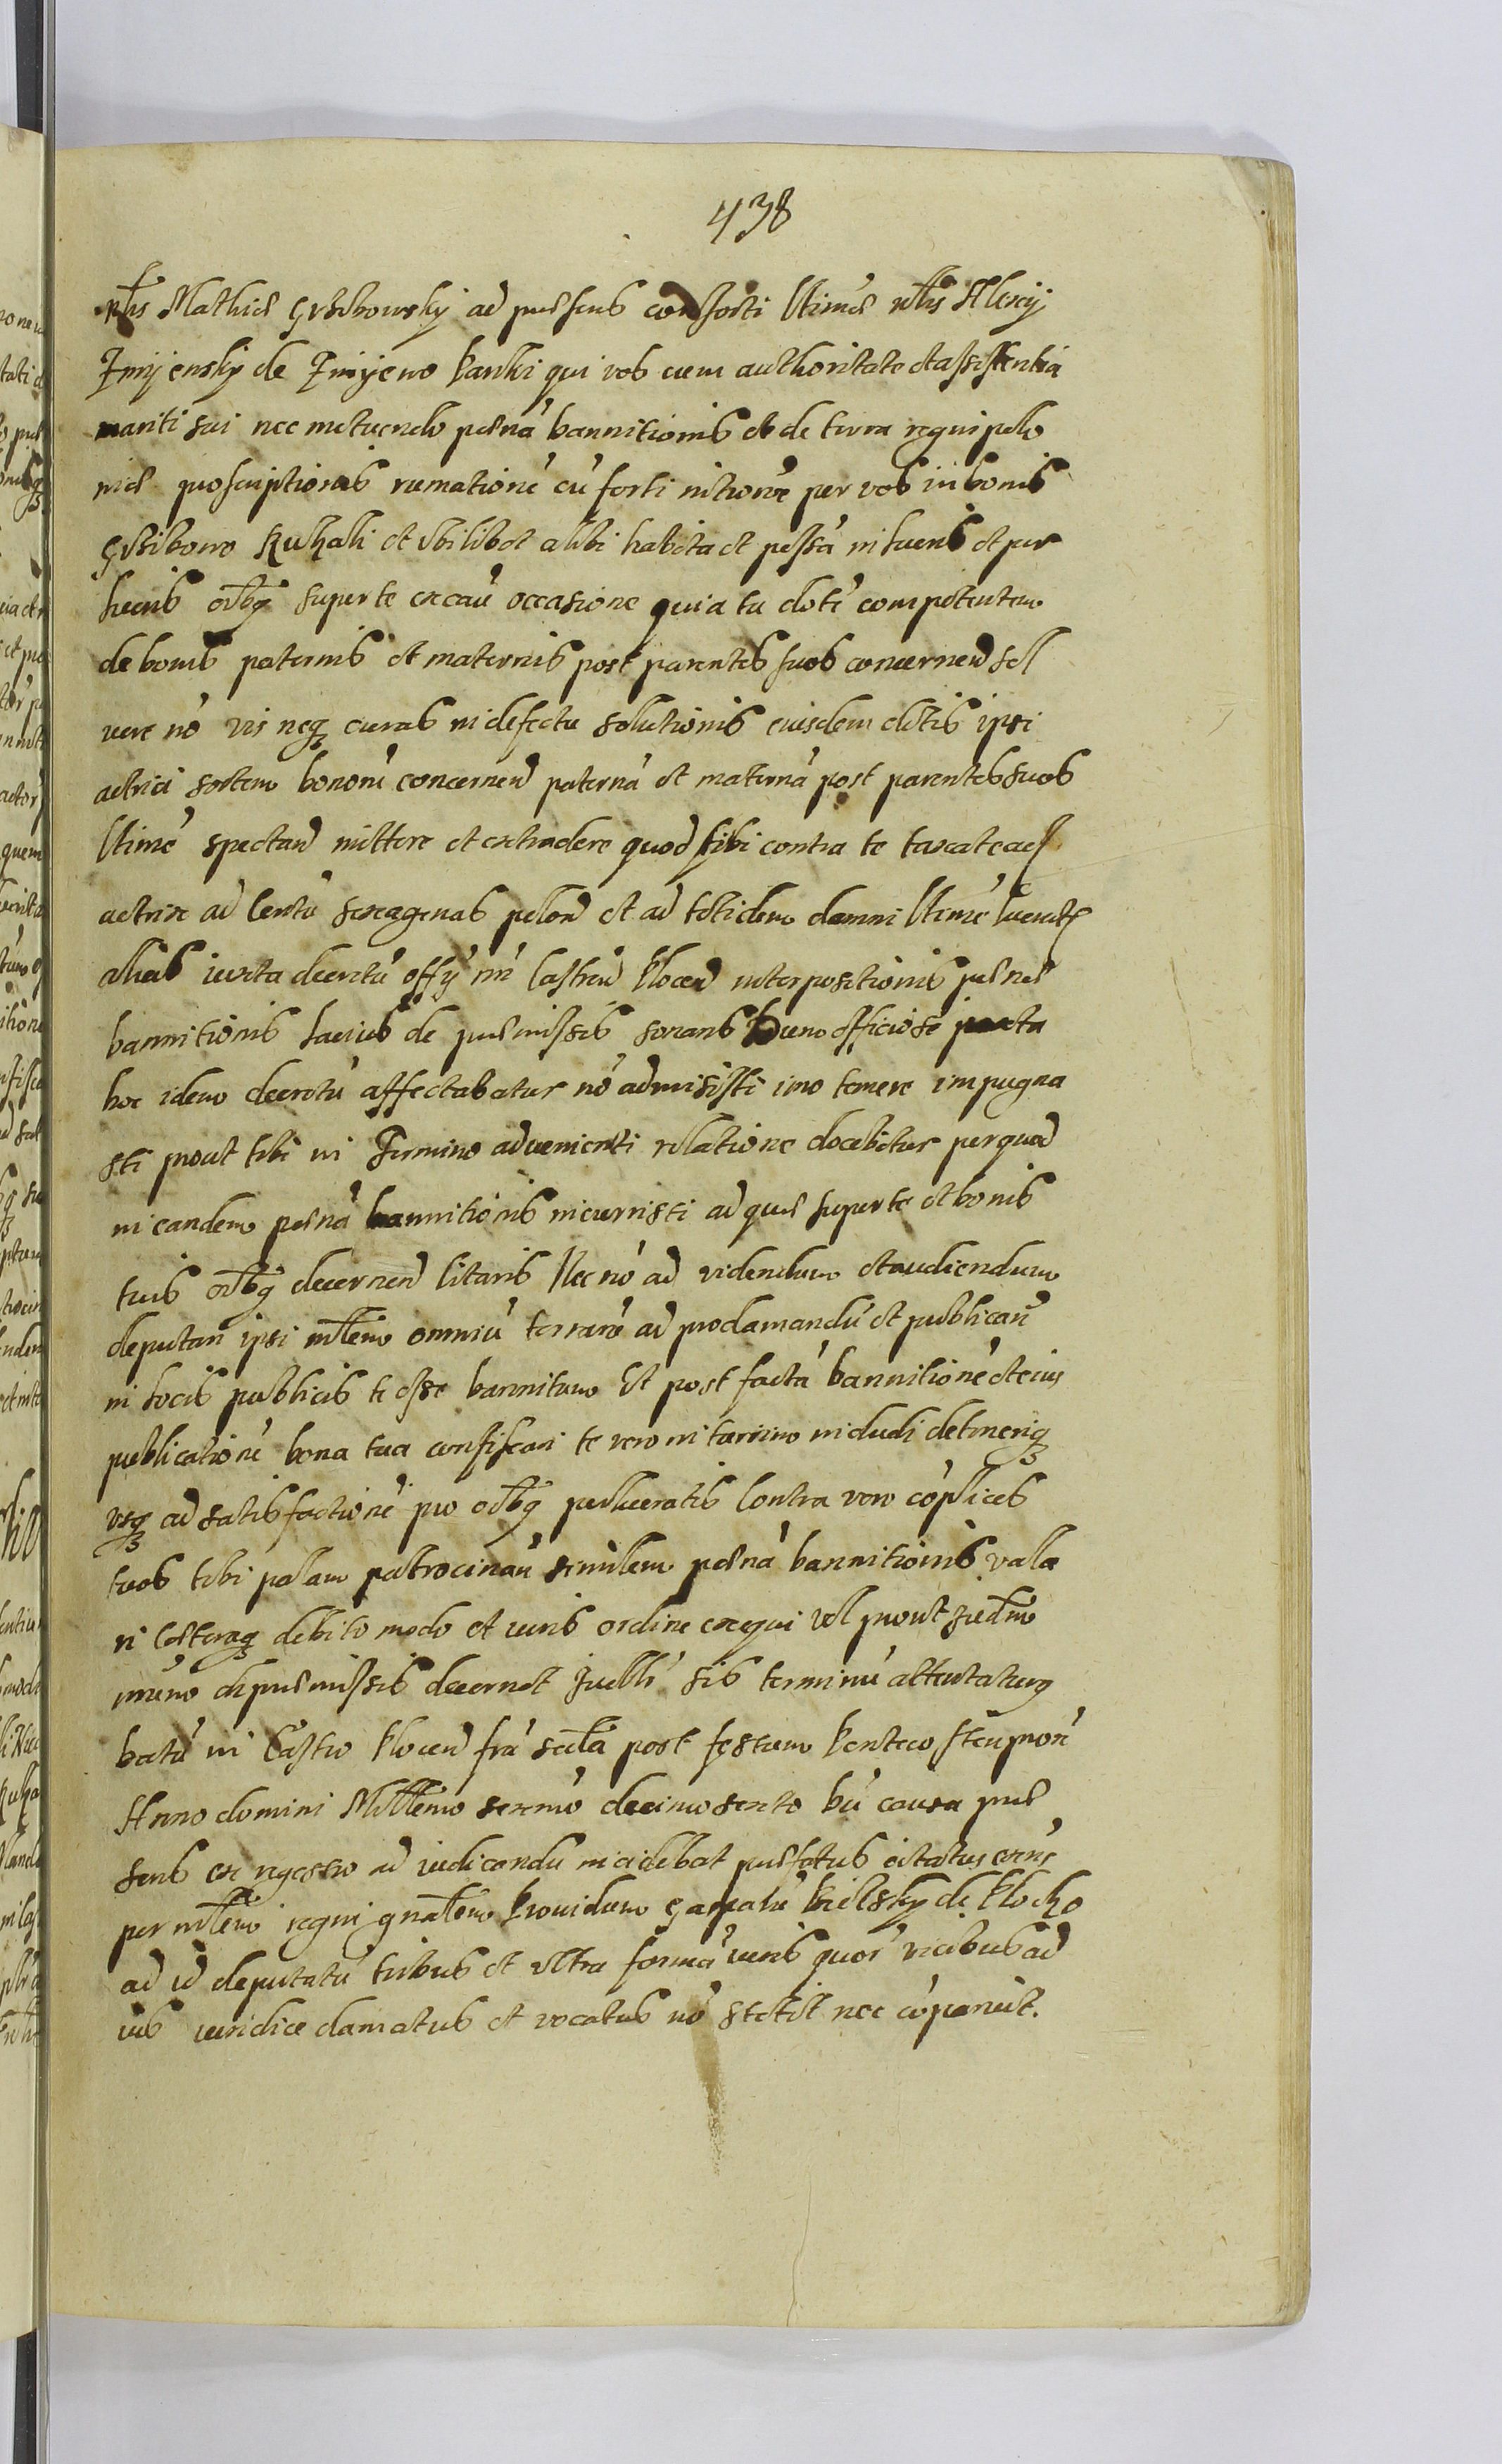 438
nobilis Mathiæ Grzibowsky ad præsens consorti legitimæ nobilis Alexij
Zmijensky de Zmijewo Panki qui vos cum authoritate et assistentia
mariti sui nec metuendo pœnā bannitionis et de terra regni polo
niæ proscriptionis rumationē cū forti per vos in bonis
Grzibowo Kuhalli et vbilibet alibi habita et possā in tuens et per
tuens oībq super te execaū occasione quia tu dotē competentem
de bonis paternis et maternis post parentes suos concernen sol
uere nō vis neq curas in defectu solutionis eiusdem dotis ipsi
actrici sortem bonorū concernen paternā et maternā post parentes suos
ltime spectan mittere et extradere quod sibi contra te taxat eadē
actrix ad Centū sexagenas polon et ad totidem damni ltime
alias iuxta decretū offÿ nri Castren Plocen interpositionis pœnæ
bannitionis latius de præmissis sonans officiose iuxta
hoc idem decretū affectabatur nō admisisti imo temere impugna
sti prout tibi in Termino advenienti relatione docebitur per quod
in eandem pœnā bannitionis incurristi ad quæ super te et bonis
tuis oībq decernen Citaris Nec nō ad videndum et audiendum
deputari ipsi mtlem omniū terrarū ad proclamandū et publicaū
in locis publicis te esse bannitum Et post factā bannitionē et eius
publicationē bona tua confiscari te vero in turrim includi detineriq
vsq ad satisfactionē pro oībq perlucratis Contra vero cōplices
tuos tibi palam patrocinaū similem pœnā bannitionis vala
ri Cæteraq debito modo et iuris ordine exequi vel prout Judm
nrūm de præmissis decernet Judlr sis terminū attentaturq
batū in Castro Plocen frā sexta post festum Pentecosten proxī
Anno domini Milllemo sexcmō decimo sexto bū causa præ
sens ex regestro ad iudicandū incidebat præfatus citatus
per mtlem regni gnalem Prouidum Gasparū Bielsky de Plocko
ad id deputatū tribus et vltra formā iuris quor vicibus ad
ius iuridice clamatus et vocatus nō stetit nec cōparuit.